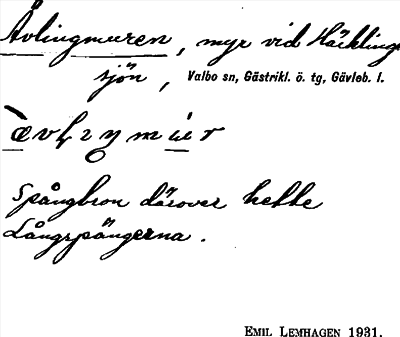 Åvlingmuren, myr vid Häcklinge
sjön, Valbo sn, Gästrikl. ö. tg, Gävleb. l.
Spångbron därover hette
Långspängerna.
EMIL LEMHAGEN 1931.